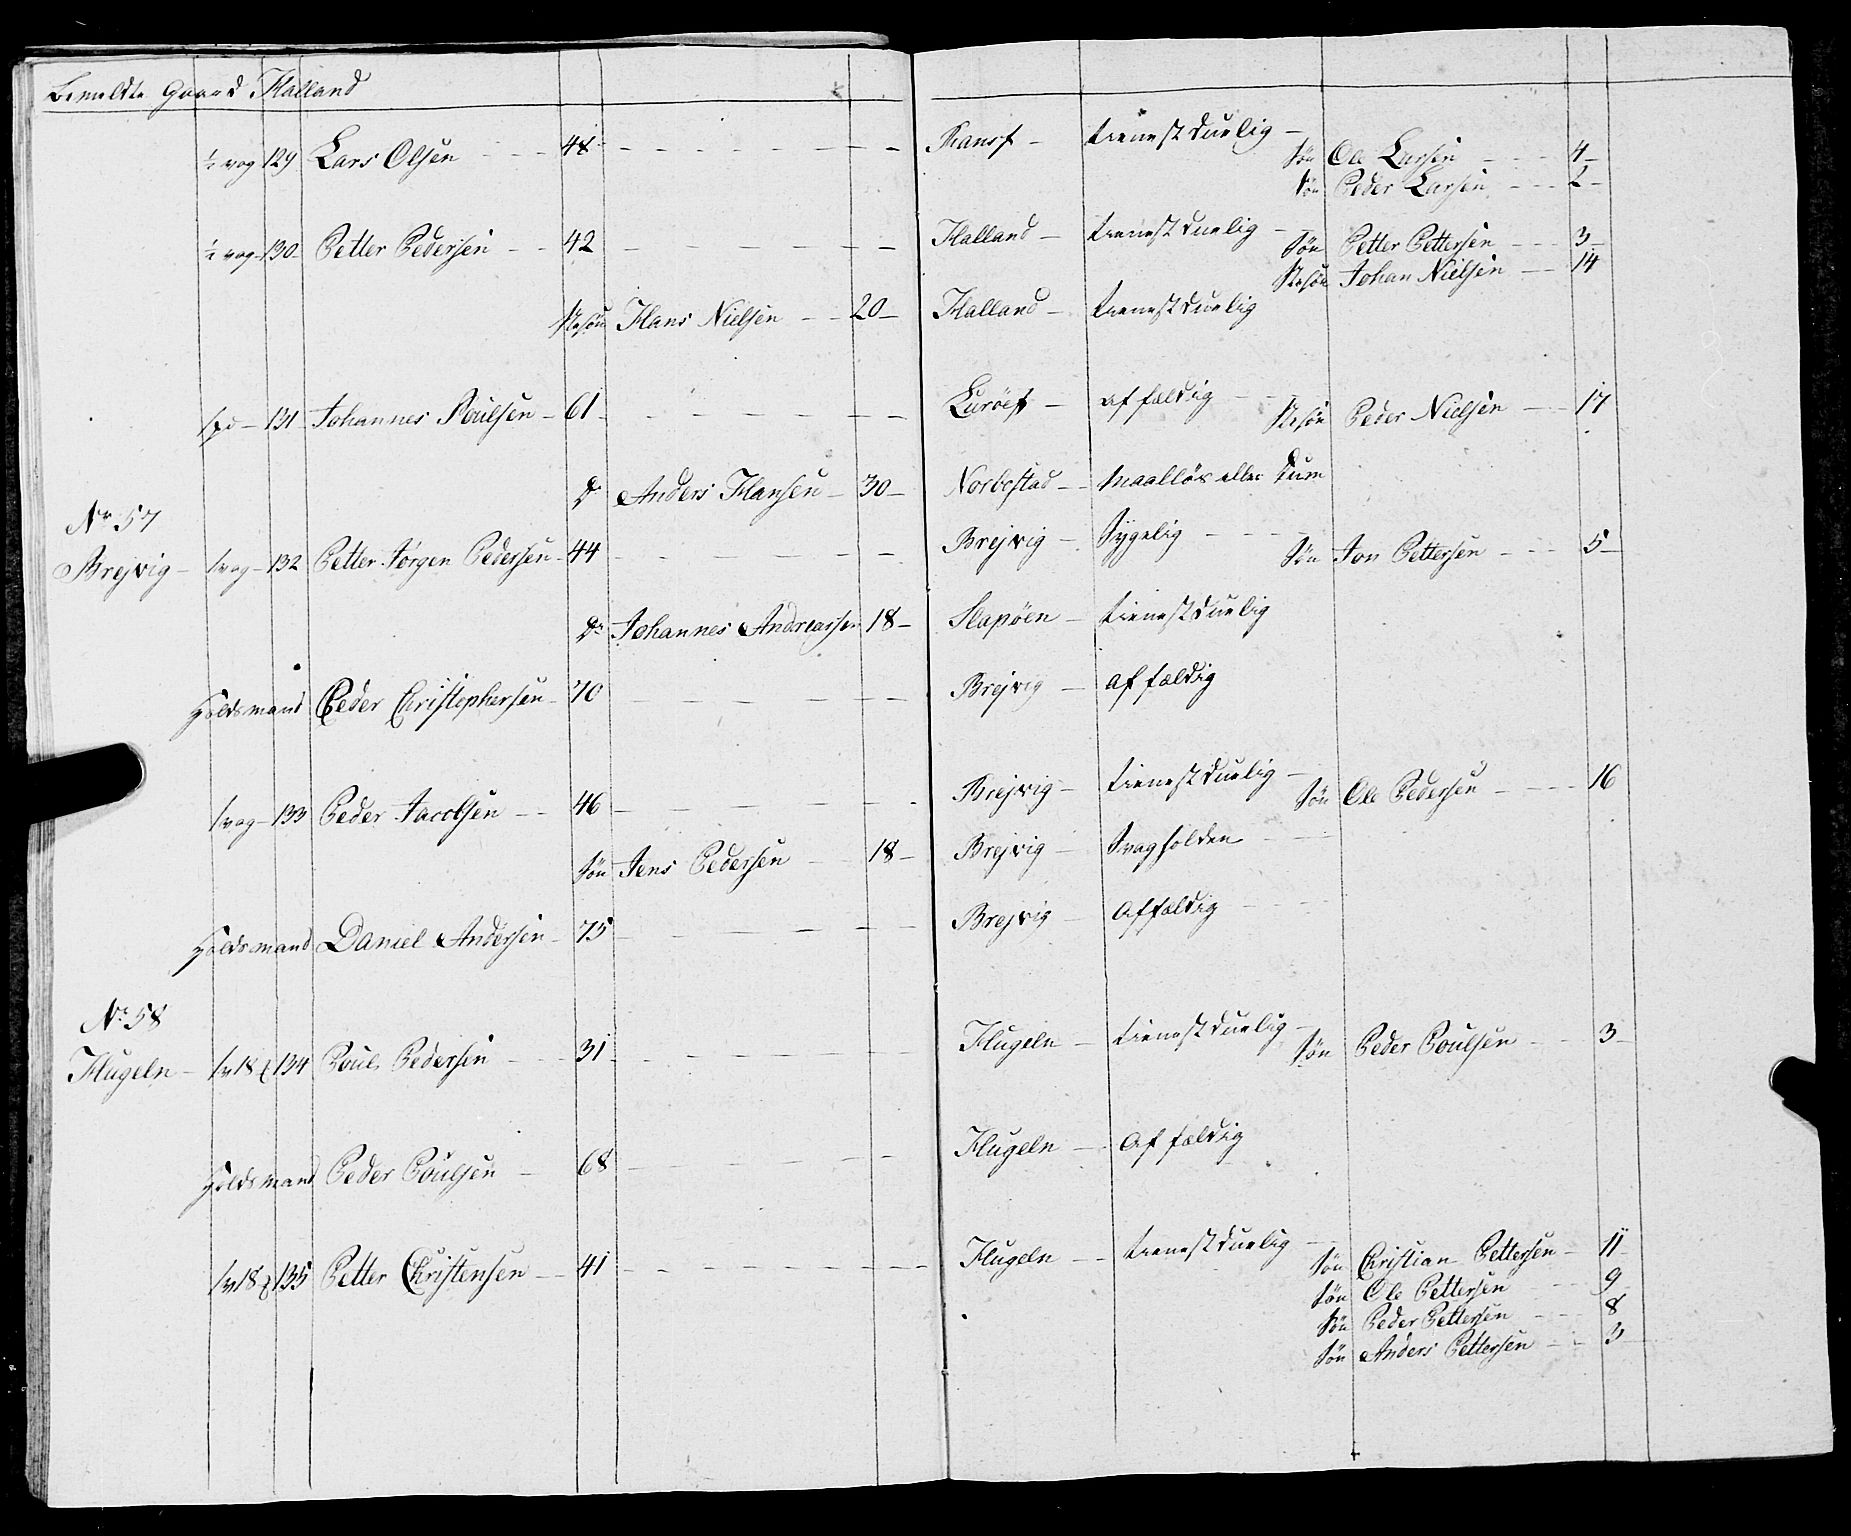 bemeldte Gaard Halland
½ vog 129 Lars Olsen 48 Ransf tienestduelig
Søn Ole Larsen 4
Søn Peder Larsen 2
½ vog 130 Petter Pedersen 42 Halland tienestduelig
Søn Petter Pettersen 3
Stesøn Johan Nielsen 14
Stesøn Hans Nielsen 20 Halland tienestduelig
1pd 131 Johannes Poulsen 61 Lurøef affældig
Stesøn Peder Nielsen 17
Dr Anders Hansen 30 Norbostad Maalløs eller Dum
No 57
Brejvig 1vog 132 Petter Jørgen Pedersen 44 Brejvig Sygelig
Søn Jon Pettersen 5
Dr Johannes Andreassen 18 Slapøen tienestduelig
Holdsmand Peder Christophersen 70 Brejvig affældig
1vog 133 Peder Jacobsen 46 Brejvig tienestduelig
Søn Ole Pedersen 16
Søn Jens Pedersen 18 Brejvig Svagholden
Holdsmand Daniel Andersen 75 Brejvig Affældig
No 58
Hugeln 1v18 134 Poul Pedersen 31 Hugeln tienestduelig
Søn Peder Poulsen 3
Holdsmand Peder Poulsen 68 Hugeln Affældig
1v18 135 Petter Christensen 41 Hugeln tienestduelig
Søn Christian Pettersen 11
Søn Ole Pettersen 9
Søn Peder Pettersen 8
Søn Anders Pettersen 3